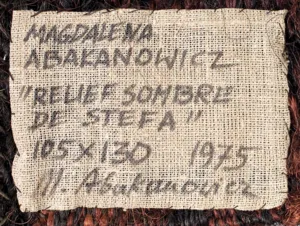 MAGDALENA
ABAKANOWICZ
"RELIEF SOMBRE
DE STEFA"
105X130 1975
M. Abakanowicz